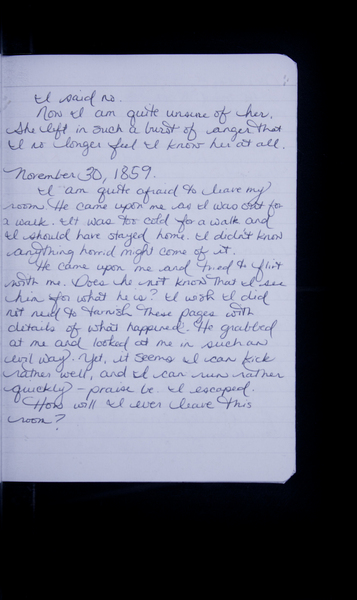 I said no.
Now I am quite unsure of her.
She left in such a burst of anger that
I no longer feel I know her at all.
November 30, 1859.
I am quite afraid to leave my
room. He came upon me as I was out for
a walk. It was too cold for a walk and
I should have stayed home. I didn't know
anything horrid might come of it.
He came upon me and tried to flirt
with me. Does he not know that I see
him for what he is? I wish I did
not need to tarnish these pages with
details of what happened. He grabbed
at me and looked at me in such an
evil way. Yet, it seems I can kick
rather well, and I can run rather
quickly - praise be. I escaped.
How will I ever leave this
room?